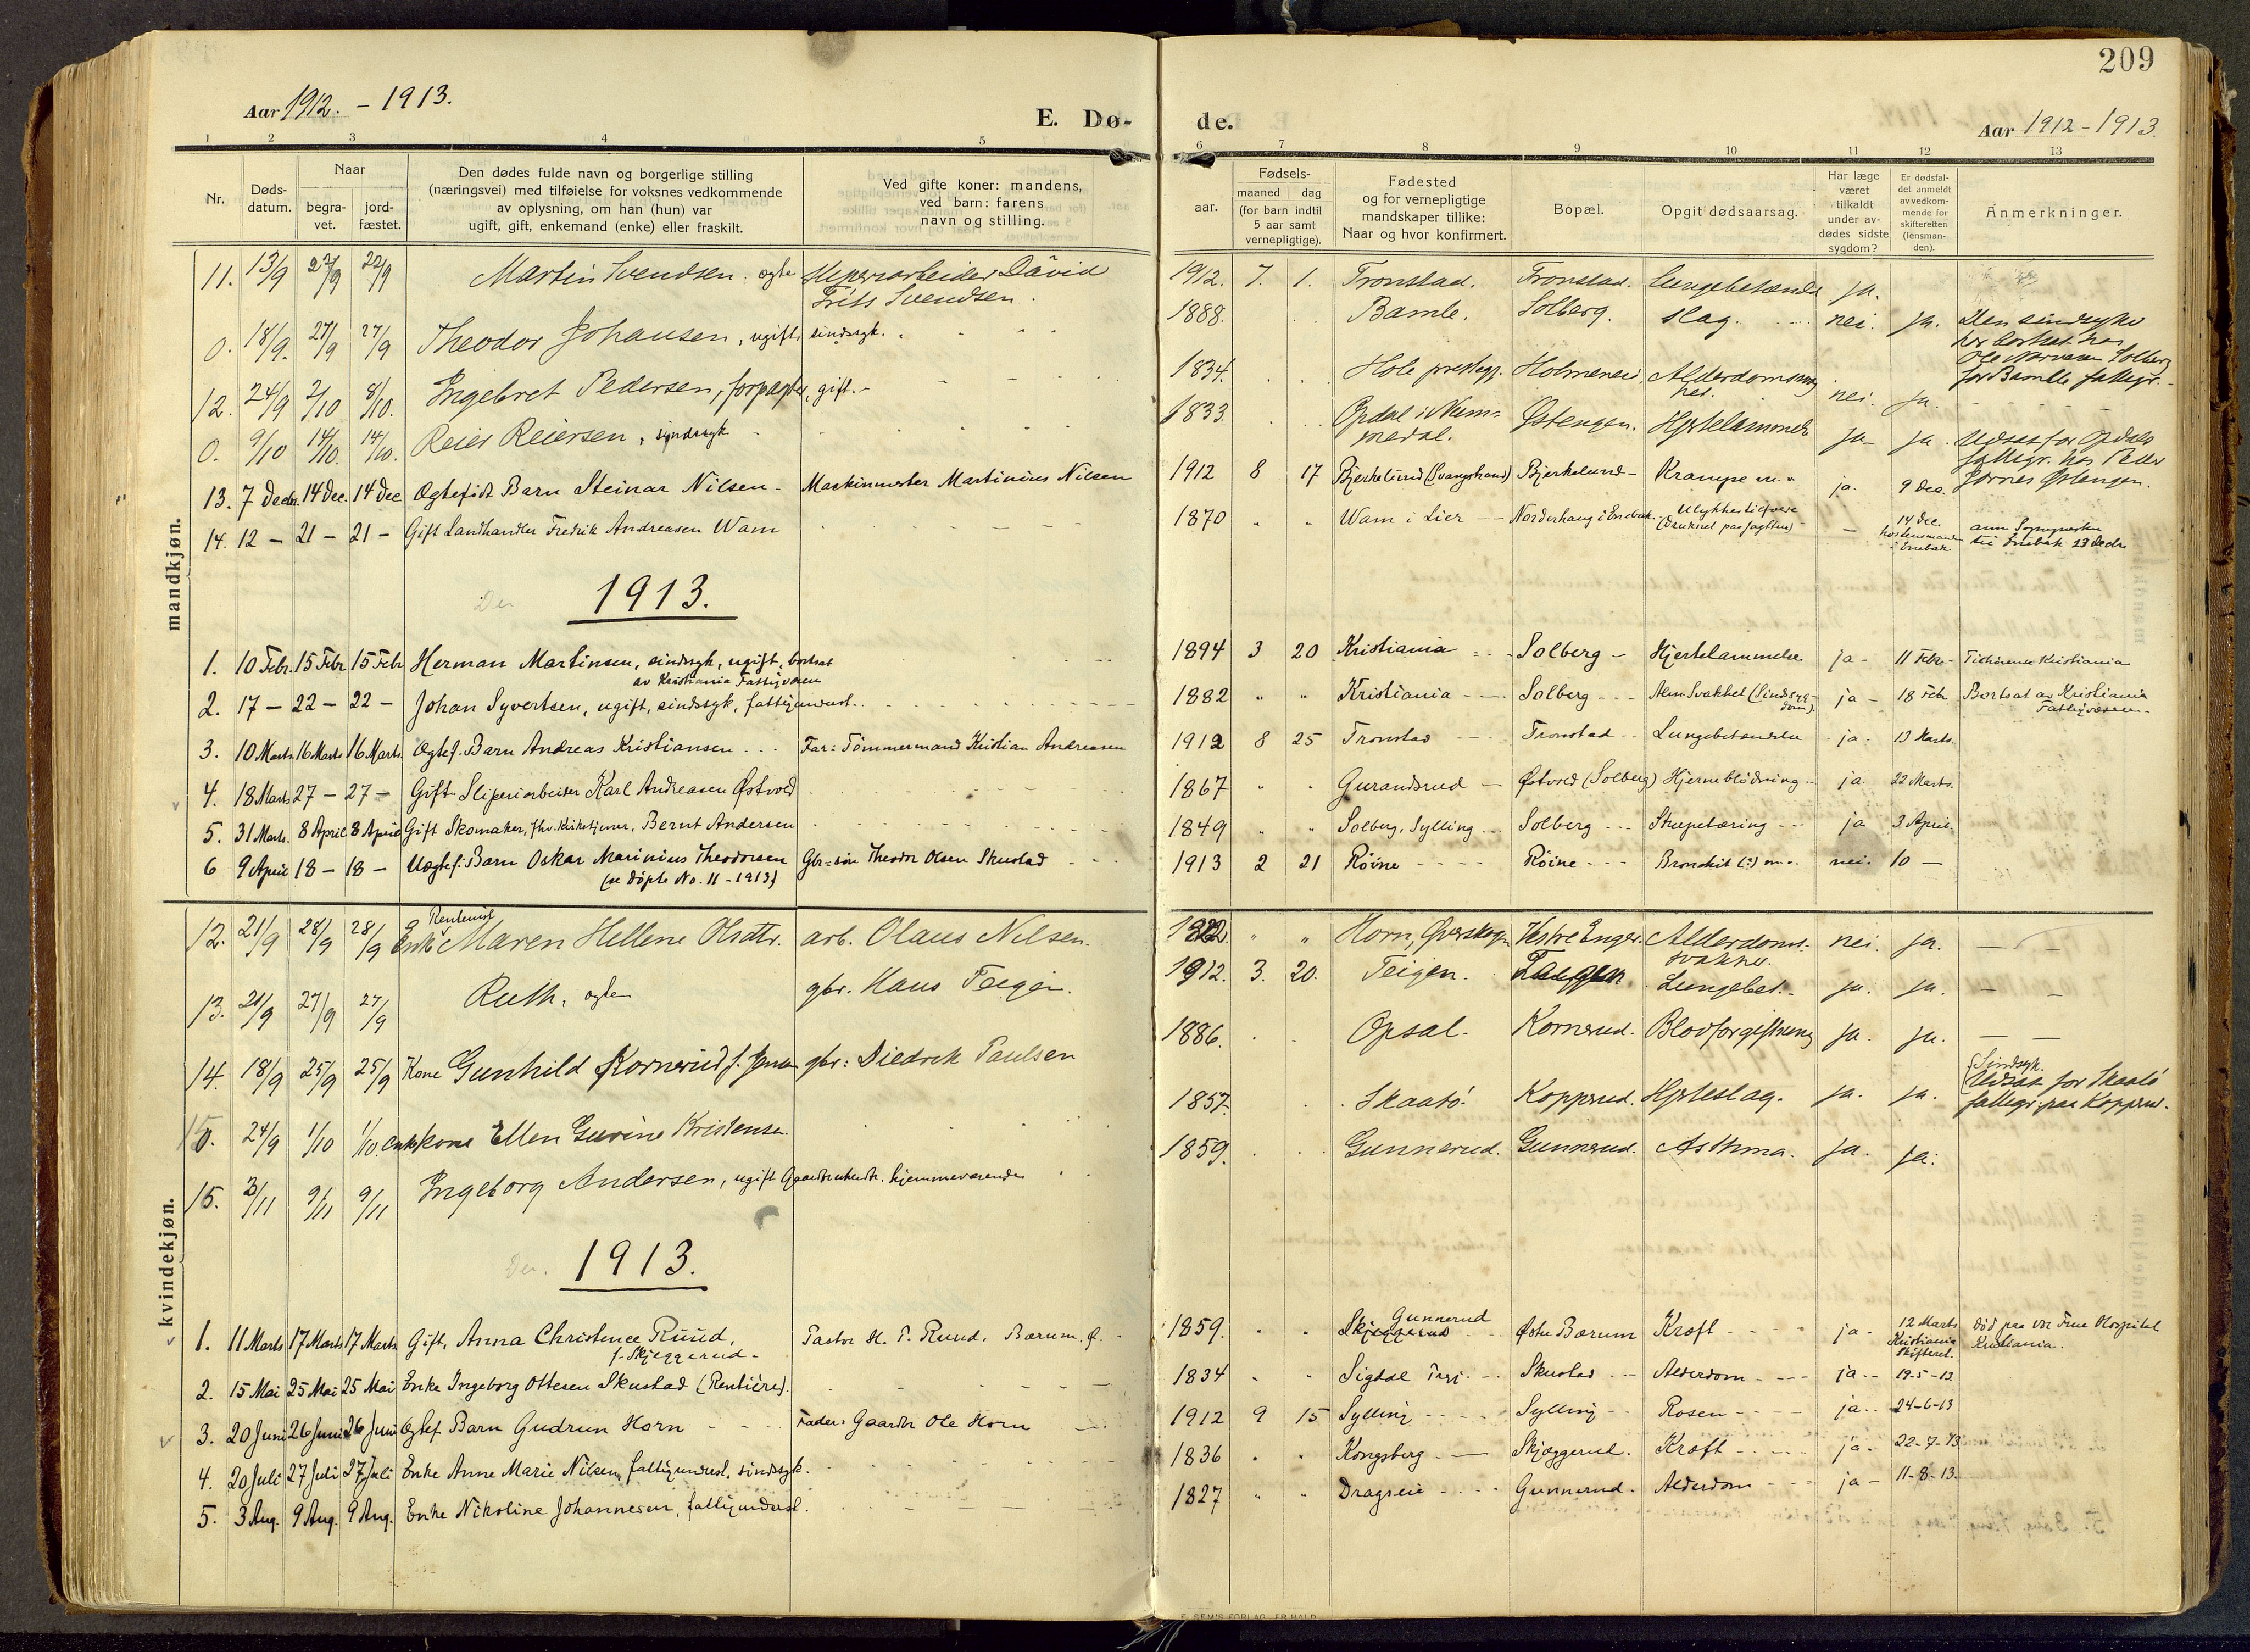 209
Aar 1912. - 1913.
E. Dø-
de.
Aar 1912-1913.
1 2 3 4 5 6 7 8 9 10 11 12 13
Nr.
Døds-
datum.
Naar
begra-
vet.
jord-
fæstet.
Den dødes fulde navn og borgerlige stilling
(næringsvei) med tilføielse for voksnes vedkommende
av oplysning, om han (hun) var
ugift, gift, enkemand (enke) eller fraskilt.
Ved gifte koner: mandens,
ved barn: farens
navn og stilling.
Fødsels-
aar.
maaned dag
(for barn indtil
5 aar samt
vernepligtige).
Fødested
og for vernepligtige
mandskaper tillike:
Naar og hvor konfirmert.
Bopæl.
Opgit dødsaarsag.
Har læge
været
tilkaldt
under av-
dødes sidste
sygdom?
Er dødsfal-
det anmeldt
av vedkom-
mende for
skifteretten
(lensman-
den).
Anmerkninger.
mandkjøn.
11. 13/9 22/9 22/9 Martin Svendsen. ægte David
Frits Svendsen. 1912. 7. 1. Tronstad. Tronstad. Lungebetænd. ja.
0. 18/9. 27/9 27/9 Theodor Johansen, ugift, sindssyk. 1888. Bamle. Solberg. Slag. nei. ja. Den sindssyke
her bortsat hos
Ole Solberg
for Bamle fattigv.
12. 24/9 2/10 8/10. Ingebret Pedersen, forpagter, gift. 1834. Hole prestegj. Holmeneie, Alderdomssvag
hed. nei. ja.
0. 9/10 14/10. 14/10. Reier Reiersen, sindssyk 1833. Opdal i Num-
medal. Østengen. Hjertelammelse ja ja. Udsat for Opdals
fattigv. hos Peder
Jørnes Østengen.
13. 7 Decbr. 14 Dec. 14 Dec Ægtefødt Barn Steinar Nilsen - Maskinmester Martinius Nilsen 1912 8 17 Bjerkelund (Svangstrand) Bjerkelund - Krampe m. ja. 9 Dec.
14. 12 - 21 - 21 - Gift Landhandler Fredrik Andreasen Wam 1870 " " Wam i Lier - Norderhaug i Enebak. Ulykkestilfælde
(druknet paa Jagttur) - 14 Dec.
hos Lensmanden
i Enebak ann Sogneprester
til Enebak 23 Decbr
1913.
1. 10 Febr. 15 Febr 15 Febr Herman Martinsen, sindssyk, ugift, bortsat
av Kristiania Fattigvæsen 1894 3 20 Kristiania - Solberg - Hjertelammelse ja - 11 Febr - Tilhørende Kristiania
2. 17 - 22 - 22 - Johan Syvertsen, ugift, sindssyk, fattigunderst. 1882 " " Kristiania - Solberg - Alm. Svakhet (Sindssyg-
dom). ja - 18 Febr Bortsat av Kristiania
Fattigvæsen.
3. 10 Marts 16 Marts 16 Marts. Ægtef. Barn Andreas Kristiansen Far: Tømmermand Kristian Andreasen 1912 8 25 Tronstad Tronstad Lungebetændelse ja. 13 Marts.
4. 18 Marts 27 - 27 - Gift Sliperiarbeider Karl Andreasen Østvold 1867 " " Gurandsrud - Østvold (Solberg) Hjerneblødning ja 22 Marts.
5. 31 Marts. 8 April 8 April Gift Skomaker, fhv. Kirketjener, Bernt Andersen 1849 " " Solberg, Sylling Solberg Strupetæring ja 3 April.
6 9 April 18 - 18 - Uægtef. Barn Oskar Marinius Theodorsen
(se døpte No. 11 - 1913) Gbr-søn Theodor Olsen Skustad 1913 2 21 Røine Røine Bronchit (?) m. nei. 10 -
kvindekjøn.
12. 21/9 28/9 28/9 Rentenist
Enke Maren Hellene Olsdtr. arb. Olaus Nilsen. " " Horn, Øverskogn Vestre Enger. Alderdoms-
svakhed. nei. ja.
13. 21/9 27/9 27/9 Ruth, ægte gbr. Hans Teigen. 1912. 3. 20. Teigen. Teigen. Lungebet. - ja. ja.
14. 18/9 25/9 25/9 Kone Gunhild Kornerud f. Jensen gbr: Diedrik Paulsen 1886. Opsal. Kornerud. Blodforgiftning ja. ja.
0. 24/9 1/10 1/10. Enkekone Ellen Gurine Kristensen. 1857. Skaatø. Kopperud. Hjerteslag. ja. ja. Sindsyk.
Udsat for Skaatø
fattigv. paa Kopperud.
15. 3/11 9/11 9/11 Ingeborg Andersen, ugift Gaardbrukerdtr. hjemmeværende 1859. Gunnerud. Gunnerud. Asthma. ja. ja.
1913.
1. 11 Marts 17 Marts 17 Marts Gift, Anna Christence Ruud,
f. Skjeggerud - Pastor H. P. Ruud. Bærum. Ø. 1859. " " Gunnerud
Skjeggerud Østre Bærum Kræft ja - 12 Marts
Kristiania
Skifteret. død paa vor Frue Hospital
Kristiania.
2. 15 Mai 25 Mai 25 Mai Enke Ingeborg Ottesen Skustad (Rentière). 1834 " " Sigdal Prgj. Skustad Alderdom ja - 19-5-13
3. 20 Juni 26 Juni 26 Juni Ægtef. Barn Gudrun Horn Fader: Gaardbr Ole Horn 1912 9 15 Sylling Sylling Rosen ja - 24-6-13
4. 20 Juli 27 Juli 27 Juli Enke Anne Marie Nilsen, fattigunderst, sindssyk. 1836 " " Kongsberg Skjæggerud. Kræft ja - 22-7-13
5. 3 Aug. 9 Aug. 9 Aug. Enke Nikoline Johannesen, fattigunderst. 1827 " " Dragseie Gunnerud. Alderdom ja - 11-8-13.